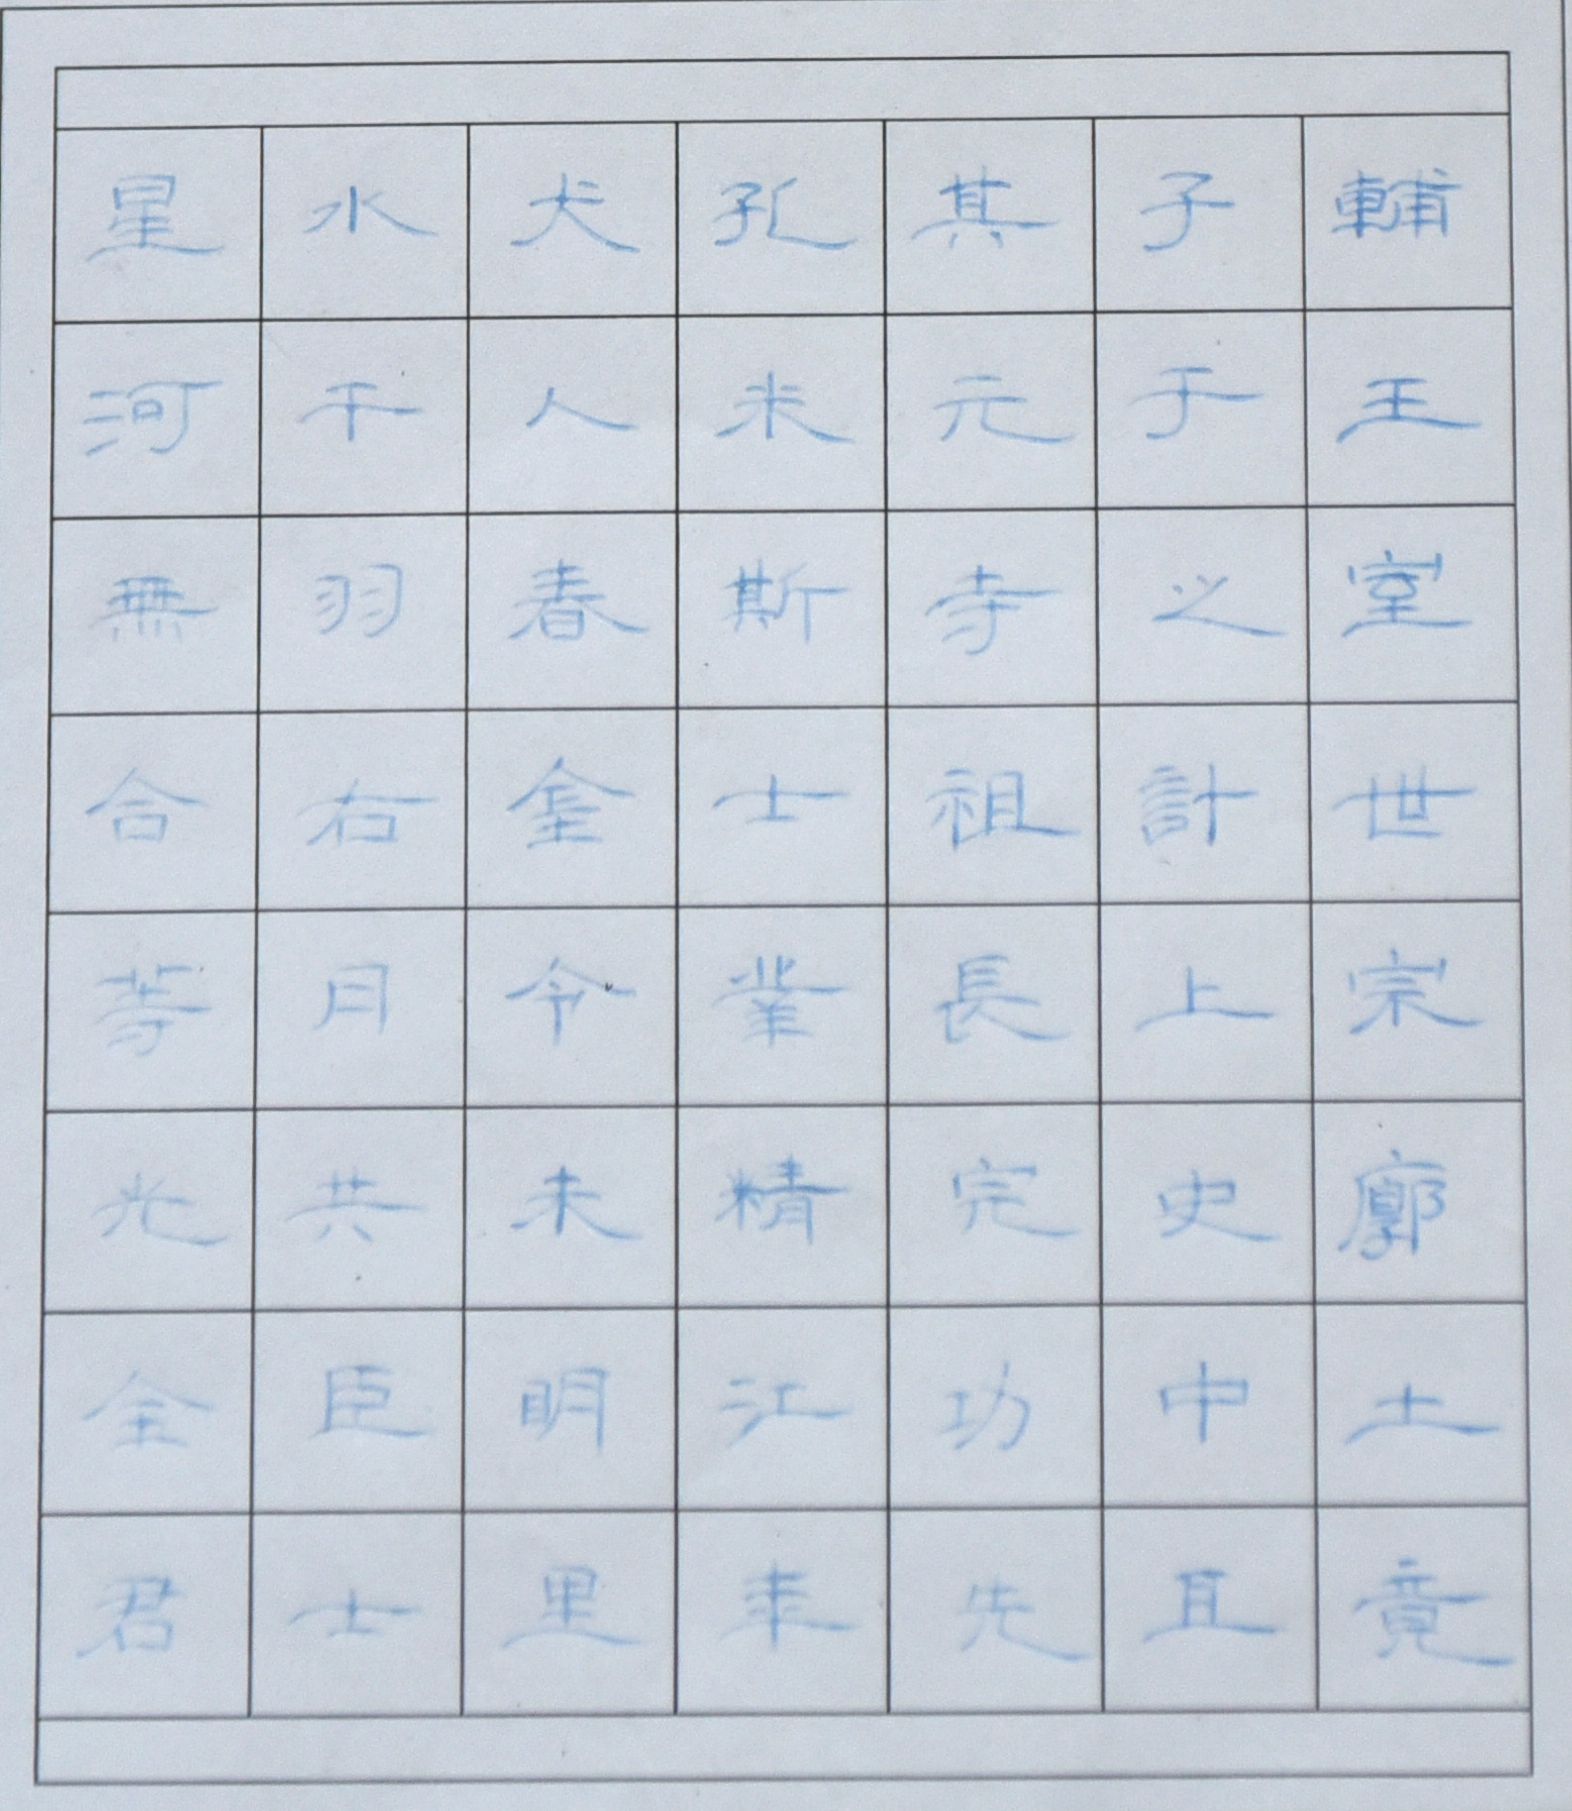 輔王室世宗廓土竟
子于之計上史中且
其元寺祖長完功先
孔米斯士業精江年
犬人春金令未明里
水干羽右月共臣士
星河無合等光全君